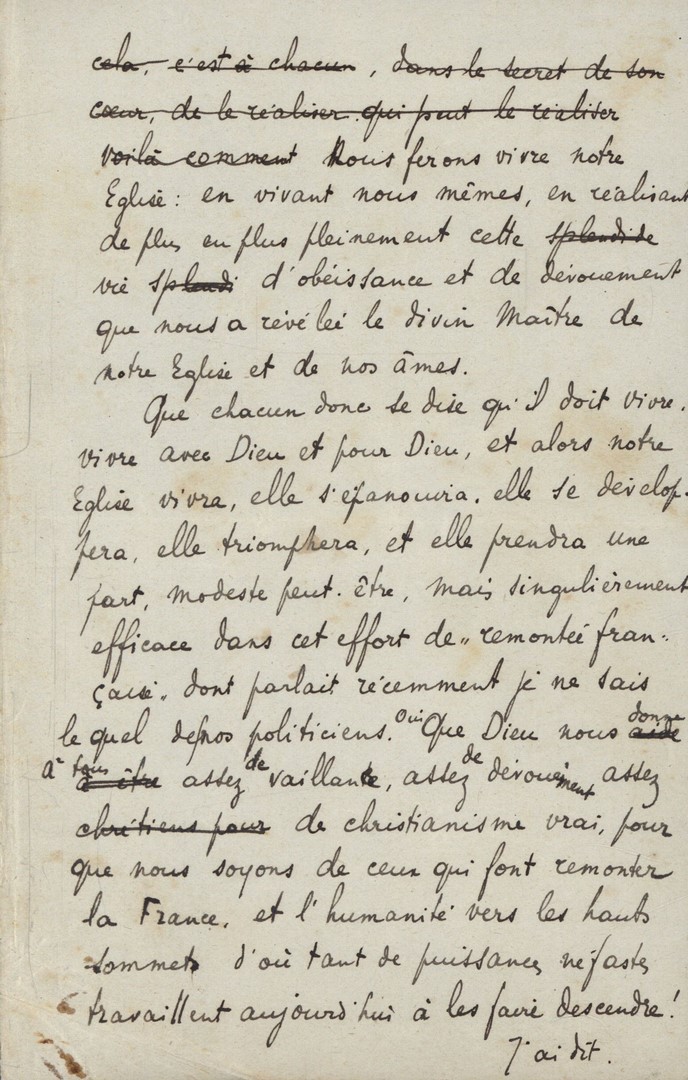 cela, c'est à chacun, dans le secret de son
cœur, de le réaliser qui peut le réaliser
voilà comment Nous ferons vivre notre
Eglise : en vivant nous mêmes, en réalisant
de plus en plus pleinement cette splendide
vie splendi d'obéissance et de dévouement
que nous a révélée le divin Maître de
notre Eglise et de nos âmes.
Que chacun donc se dise qu'il doit vivre,
vivre avec Dieu et pour Dieu, et alors notre
Eglise vivra, elle s'épanouira, elle se dévelop-
pera, elle triomphera, et elle prendra une
part, modeste peut-être, mais singulièrement
efficace dans cet effort de „ remontée fran-
çaise „ dont parlait récemment je ne sais
le quel de nos politiciens. Oui Que Dieu nous aide donne
à être à tous assez de vaillance, assez de dévouement assez
chrétiens pour de christianisme vrai, pour
que nous soyons de ceux qui font remonter
la France, et l'humanité vers les hauts
sommets d'où tant de puissances néfastes
travaillent aujourd'hui à les faire descendre !
J'ai dit.